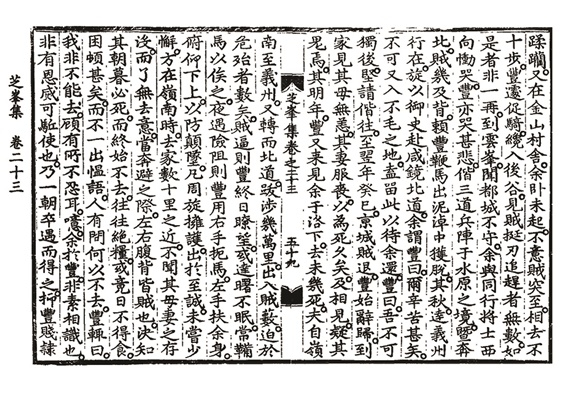 蹂躪又在金山村舍余卧未起不意賊突至相去不
十步豐遽促騎纔入後谷見賊挺刃追趕者無數如
是者非一再到雲峯聞都城不守余與同行將士西
向慟哭豐亦哭甚悲偕三道兵陣于水原之境暨奔
北賊幾及背頼豐鞭馬出泥淖中獲脫其秋達義州
行在旋以御史赴咸鏡北道余謂豐曰爾辛苦甚矣
不可又入不毛之地盍留此以待余還豐曰吾不可
獨後堅請偕往至翌年癸巳京城賊退豐始辭歸到
家見其母無恙其妻服喪以為死久矣及相見疑其
鬼焉其明年豐又来見余于洛下去未幾死夫自嶺
芝峯集卷之二十三 五十九
南至義州又轉而北道跋涉幾萬里出入賊藪迫於
危殆者數矣賊逼則豐終日瞭望或達曙不眠常鞴
馬以俟之夜遇險阻則豐用右手扼馬左手扶余身
俯仰下上以防顛墜凡周旋擁護出於至誠未嘗少
懈方在嶺南時去家數十里之近不聞其母妻之存
沒而了無去意當奔避之際左右腹背皆賊也決知
其朝暮必死而終始不去往往絶糧或竟日不得食
困頓甚矣而不一出慍語人有問何以不去豐輒曰
我非不能去顧有所不忍耳噫余於豐非素相識也
非有恩感可駈使也乃一朝卒遇而得之抑豐賤隷
芝峯集 卷二十三